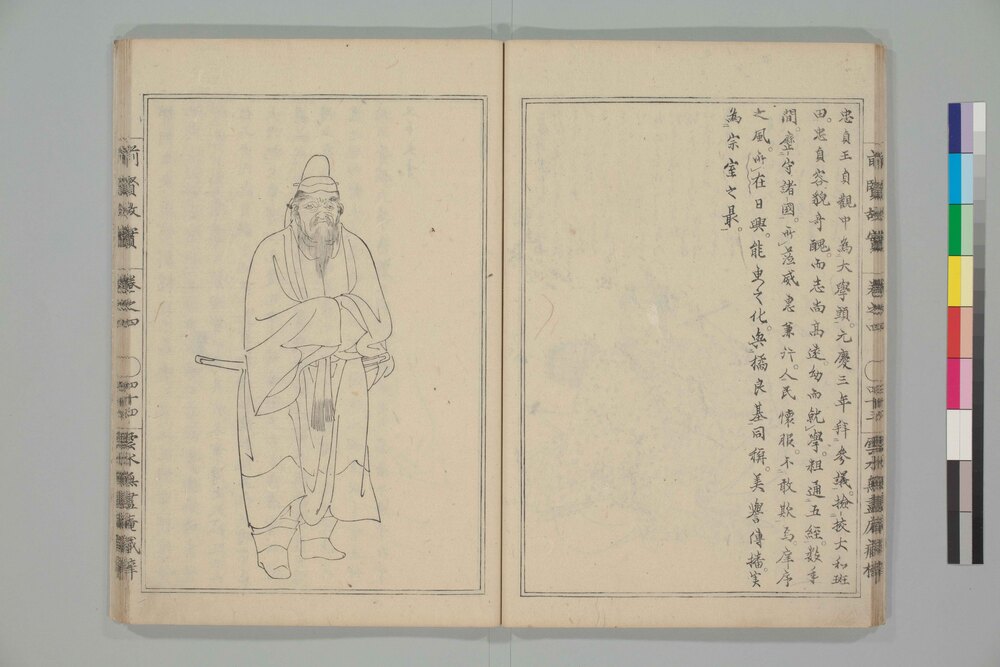 忠貞王貞觀中為大學頭。元慶三年拜參議。撿挍大和班
田。忠貞容貌奇醜。而志尚高遠。幼而就學。粗通五經。數年
間。歷守諸國。所莅威惠兼行。人民懷服。不敢欺焉。庠序
之風。所在日興。能吏之化。與橘良基同稱。美譽傳播。實
為宗室之最。
前賢故實
卷之四
四十三
前賢故實
卷之四
四十四
雲水無盡庵藏梓